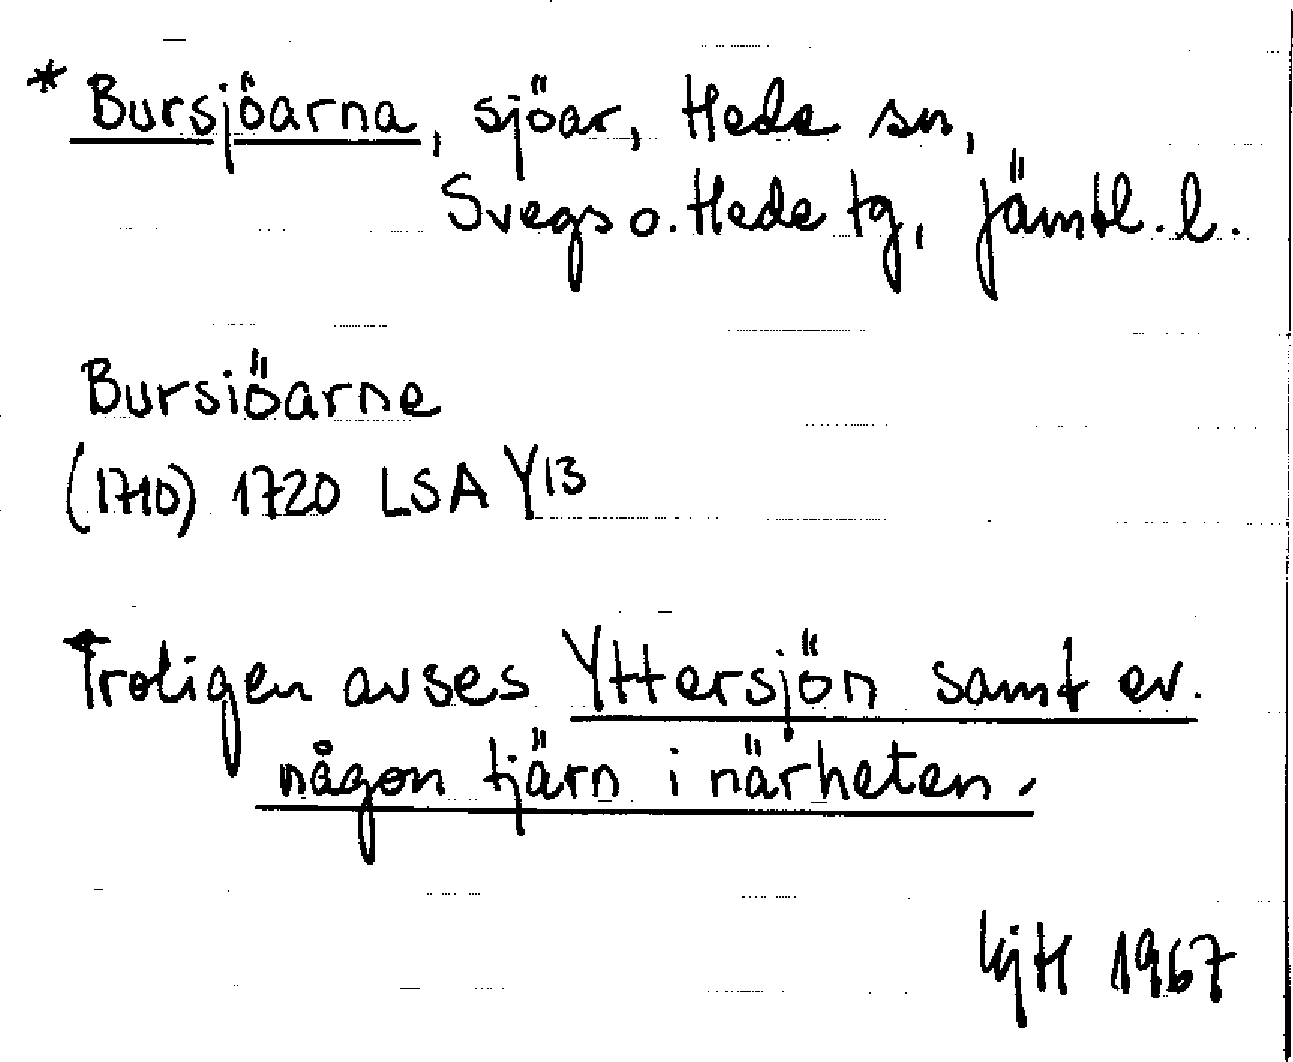 * Bursjöarna, sjöar, Hede sn,
Svegs o. Hede tg, Jämtl. l.
Bursiöarne
(1710) 1720 LSA Y13
Troligen avses Yttersjön samt ev.
någon tjärn i närheten.
1967